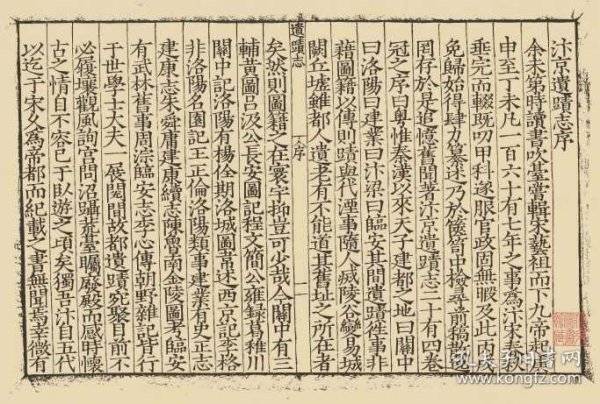 汴京遺蹟志序
余未第時讀書吹臺嘗輯宋藝祖而下九帝起庚
申至丁未凡一百六十有七年之事爲汴宋春秋
垂完而輟既叨甲科逐服官政固無暇及此丙戌
免歸始得肆力纂逐乃於篋笥中檢尋前稿散逸
罔存於是追憶舊聞著汴京遺蹟志二十有四卷
冠之序曰粤惟秦漢以來天子建都之地曰關中
曰洛陽曰建業曰汴梁曰臨安其間遺蹟徃事非
藉圖籍以傳則蹟與代湮事隨人㓕陵谷變易城
闕丘墟雖都人遺老有不能道其舊址之所在者
遺蹟志
序
一
矣然則圖籍之在寰宇抑豈可少哉今關中有三
輔黃圖吕汲公長安圖記程文簡公雍録葛稚川
關中記洛陽有楊佺期洛城圖韋述西京記李格
非洛陽名園記王正倫洛陽類事建業有史正志
建康志朱舜庸建康續志陳魯南金陵圖考臨安
有武林舊事周淙臨安志李心傳朝野雜記皆行
于世學士大夫一展閱間故都遺蹟宛聚目前不
必履壤觀風詢宫問沼躡荒臺矚廢殿而感時懷
古之情自不容已于臥遊之頃矣獨吾汴自五代
以迄于宋久爲帝都而紀載之書無聞焉幸微有
孔夫子旧书网
www.kongfz.com